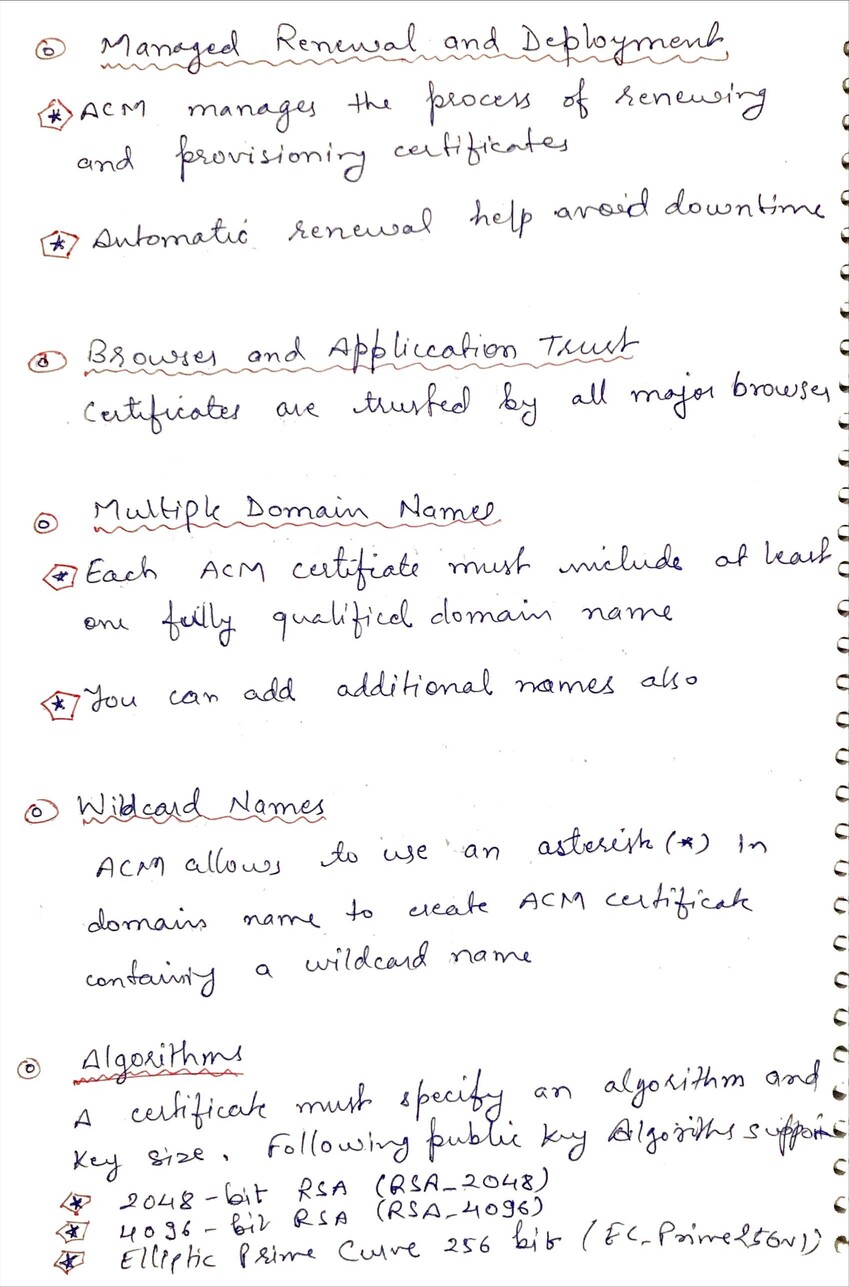 Managed Renewal and Deployment
* ACM manages the process of renewing
and provisioning certificates
* Automatic renewal help avoid downtime
Browser and Appliccation Trust
Certificates are trusted by all major browser
Multiple Domain Names
* Each ACM certificate must include at least
one fully qualified domain name
* You can add additional names also
Wildcard Names
ACM allows to use an asterisk (*) in
domain name to create ACM certificate
containing a wildcard name
Algorithms
A certificate must specify an algorithm and
Key size. Following public key Algoriths support
* 2048-bit RSA (RSA_2048)
* 4096-bit RSA (RSA_4096)
* Elliptic Prime Curve 256 bit (EC_Prime256v1)